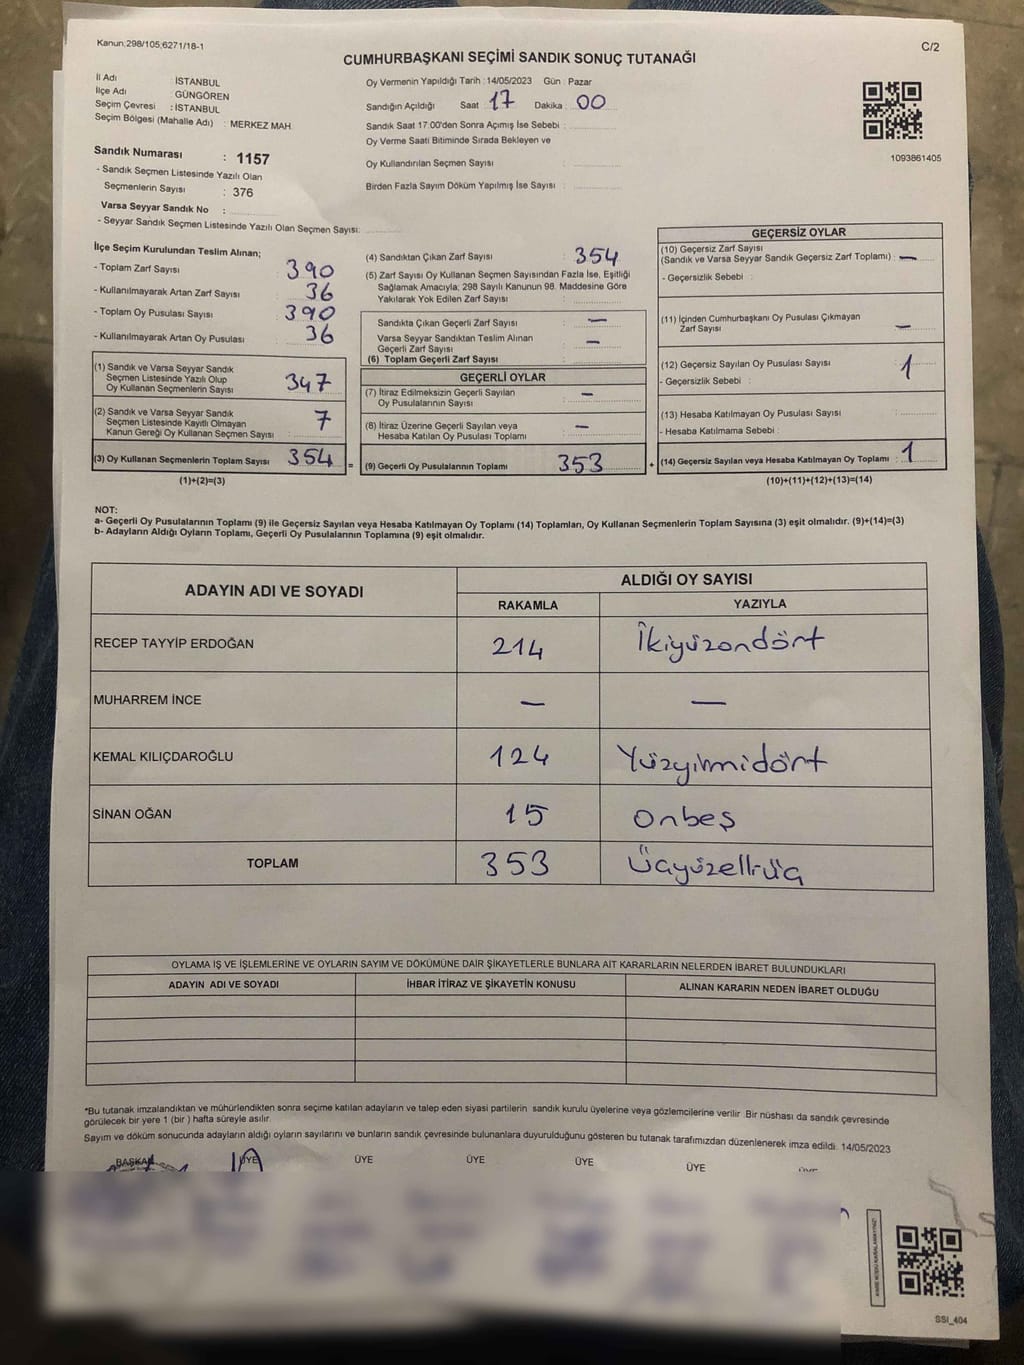 Kanun;298/105;6271/18-1
C/2
CUMHURBAŞKANI SEÇİMİ SANDIK SONUÇ TUTANAĞI
İl Adı : İSTANBUL
İlçe Adı : GÜNGÖREN
Seçim Çevresi : İSTANBUL
Seçim Bölgesi (Mahalle Adı) : MERKEZ MAH
Sandık Numarası : 1157
- Sandık Seçmen Listesinde Yazılı Olan
Seçmenlerin Sayısı : 376
Varsa Seyyar Sandık No :
- Seyyar Sandık Seçmen Listesinde Yazılı Olan Seçmen Sayısı:
Oy Vermenin Yapıldığı Tarih : 14/05/2023 Gün : Pazar
Sandığın Açıldığı Saat 17 Dakika : 00
Sandık Saat 17:00'den Sonra Açımış İse Sebebi :
Oy Verme Saati Bitiminde Sırada Bekleyen ve
Oy Kullandırılan Seçmen Sayısı :
Birden Fazla Sayım Döküm Yapılmış İse Sayısı :
1093861405
İlçe Seçim Kurulundan Teslim Alınan;
- Toplam Zarf Sayısı : 390
- Kullanılmayarak Artan Zarf Sayısı : 36
- Toplam Oy Pusulası : 390
- Kullanılmayarak Artan Oy Pusulası : 36
(1) Sandık ve Varsa Seyyar Sandık
Seçmen Listesinde Yazılı Olup
Oy Kullanan Seçmenlerin Sayısı : 347
(2) Sandık ve Varsa Seyyar Sandık
Seçmen Listesinde Kayıtlı Olmayan
Kanun Gereği Oy Kullanan Seçmen Sayısı : 7
(3) Oy Kullanan Seçmenlerin Toplam Sayısı : 354 =
(1)+(2)=(3)
(4) Sandıktan Çıkan Zarf Sayısı : 354
(5) Zarf Sayısı Oy Kullanan Seçmen Sayısından Fazla İse, Eşitliği
Sağlamak Amacıyla; 298 Sayılı Kanunun 98. Maddesine Göre
Yakılarak Yok Edilen Zarf Sayısı :
Sandıkta Çıkan Geçerli Zarf Sayısı : —
Varsa Seyyar Sandıktan Teslim Alınan
Geçerli Zarf Sayısı : —
(6) Toplam Geçerli Zarf Sayısı :
GEÇERLİ OYLAR
(7) İtiraz Edilmeksizin Geçerli Sayılan
Oy Pusulalarının Sayısı : —
(8) İtiraz Üzerine Geçerli Sayılan veya
Hesaba Katılan Oy Pusulası Toplamı : —
(9) Geçerli Oy Pusulalarının Toplamı : 353 +
GEÇERSİZ OYLAR
(10) Geçersiz Zarf Sayısı
(Sandık ve Varsa Seyyar Sandık Geçersiz Zarf Toplamı) : —
- Geçersizlik Sebebi :
(11) İçinden Cumhurbaşkanı Oy Pusulası Çıkmayan
Zarf Sayısı : —
(12) Geçersiz Sayılan Oy Pusulası Sayısı : 1
- Geçersizlik Sebebi :
(13) Hesaba Katılmayan Oy Pusulası Sayısı :
- Hesaba Katılmama Sebebi :
(14) Geçersiz Sayılan veya Hesaba Katılmayan Oy Toplamı : 1
(10)+(11)+(12)+(13)=(14)
NOT:
a- Geçerli Oy Pusulalarının Toplamı (9) ile Geçersiz Sayılan veya Hesaba Katılmayan Oy Toplamı (14) Toplamları, Oy Kullanan Seçmenlerin Toplam Sayısına (3) eşit olmalıdır. (9)+(14)=(3)
b- Adayların Aldığı Oyların Toplamı, Geçerli Oy Pusulalarının Toplamına (9) eşit olmalıdır.
ADAYIN ADI VE SOYADI
ALDIĞI OY SAYISI
RAKAMLA YAZIYLA
RECEP TAYYİP ERDOĞAN 214 İkiyüzondört
MUHARREM İNCE — —
KEMAL KILIÇDAROĞLU 124 Yüzyirmidört
SİNAN OĞAN 15 onbeş
TOPLAM 353 Üçyüzelliüç
OYLAMA İŞ VE İŞLEMLERİNE VE OYLARIN SAYIM VE DÖKÜMÜNE DAİR ŞİKAYETLERLE BUNLARA AİT KARARLARIN NELERDEN İBARET BULUNDUKLARI
ADAYIN ADI VE SOYADI İHBAR İTİRAZ VE ŞİKAYETİN KONUSU ALINAN KARARIN NEDEN İBARET OLDUĞU
*Bu tutanak imzalandıktan ve mühürlendikten sonra seçime katılan adayların ve talep eden siyasi partilerin sandık kurulu üyelerine veya gözlemcilerine verilir. Bir nüshası da sandık çevresinde
görülecek bir yere 1 (bir ) hafta süreyle asılır.
Sayım ve döküm sonucunda adayların aldığı oyların sayılarını ve bunların sandık çevresinde bulunanlara duyurulduğunu gösteren bu tutanak tarafımızdan düzenlenerek imza edildi. 14/05/2023
BAŞKAN ÜYE ÜYE ÜYE ÜYE ÜYE
SSI_404